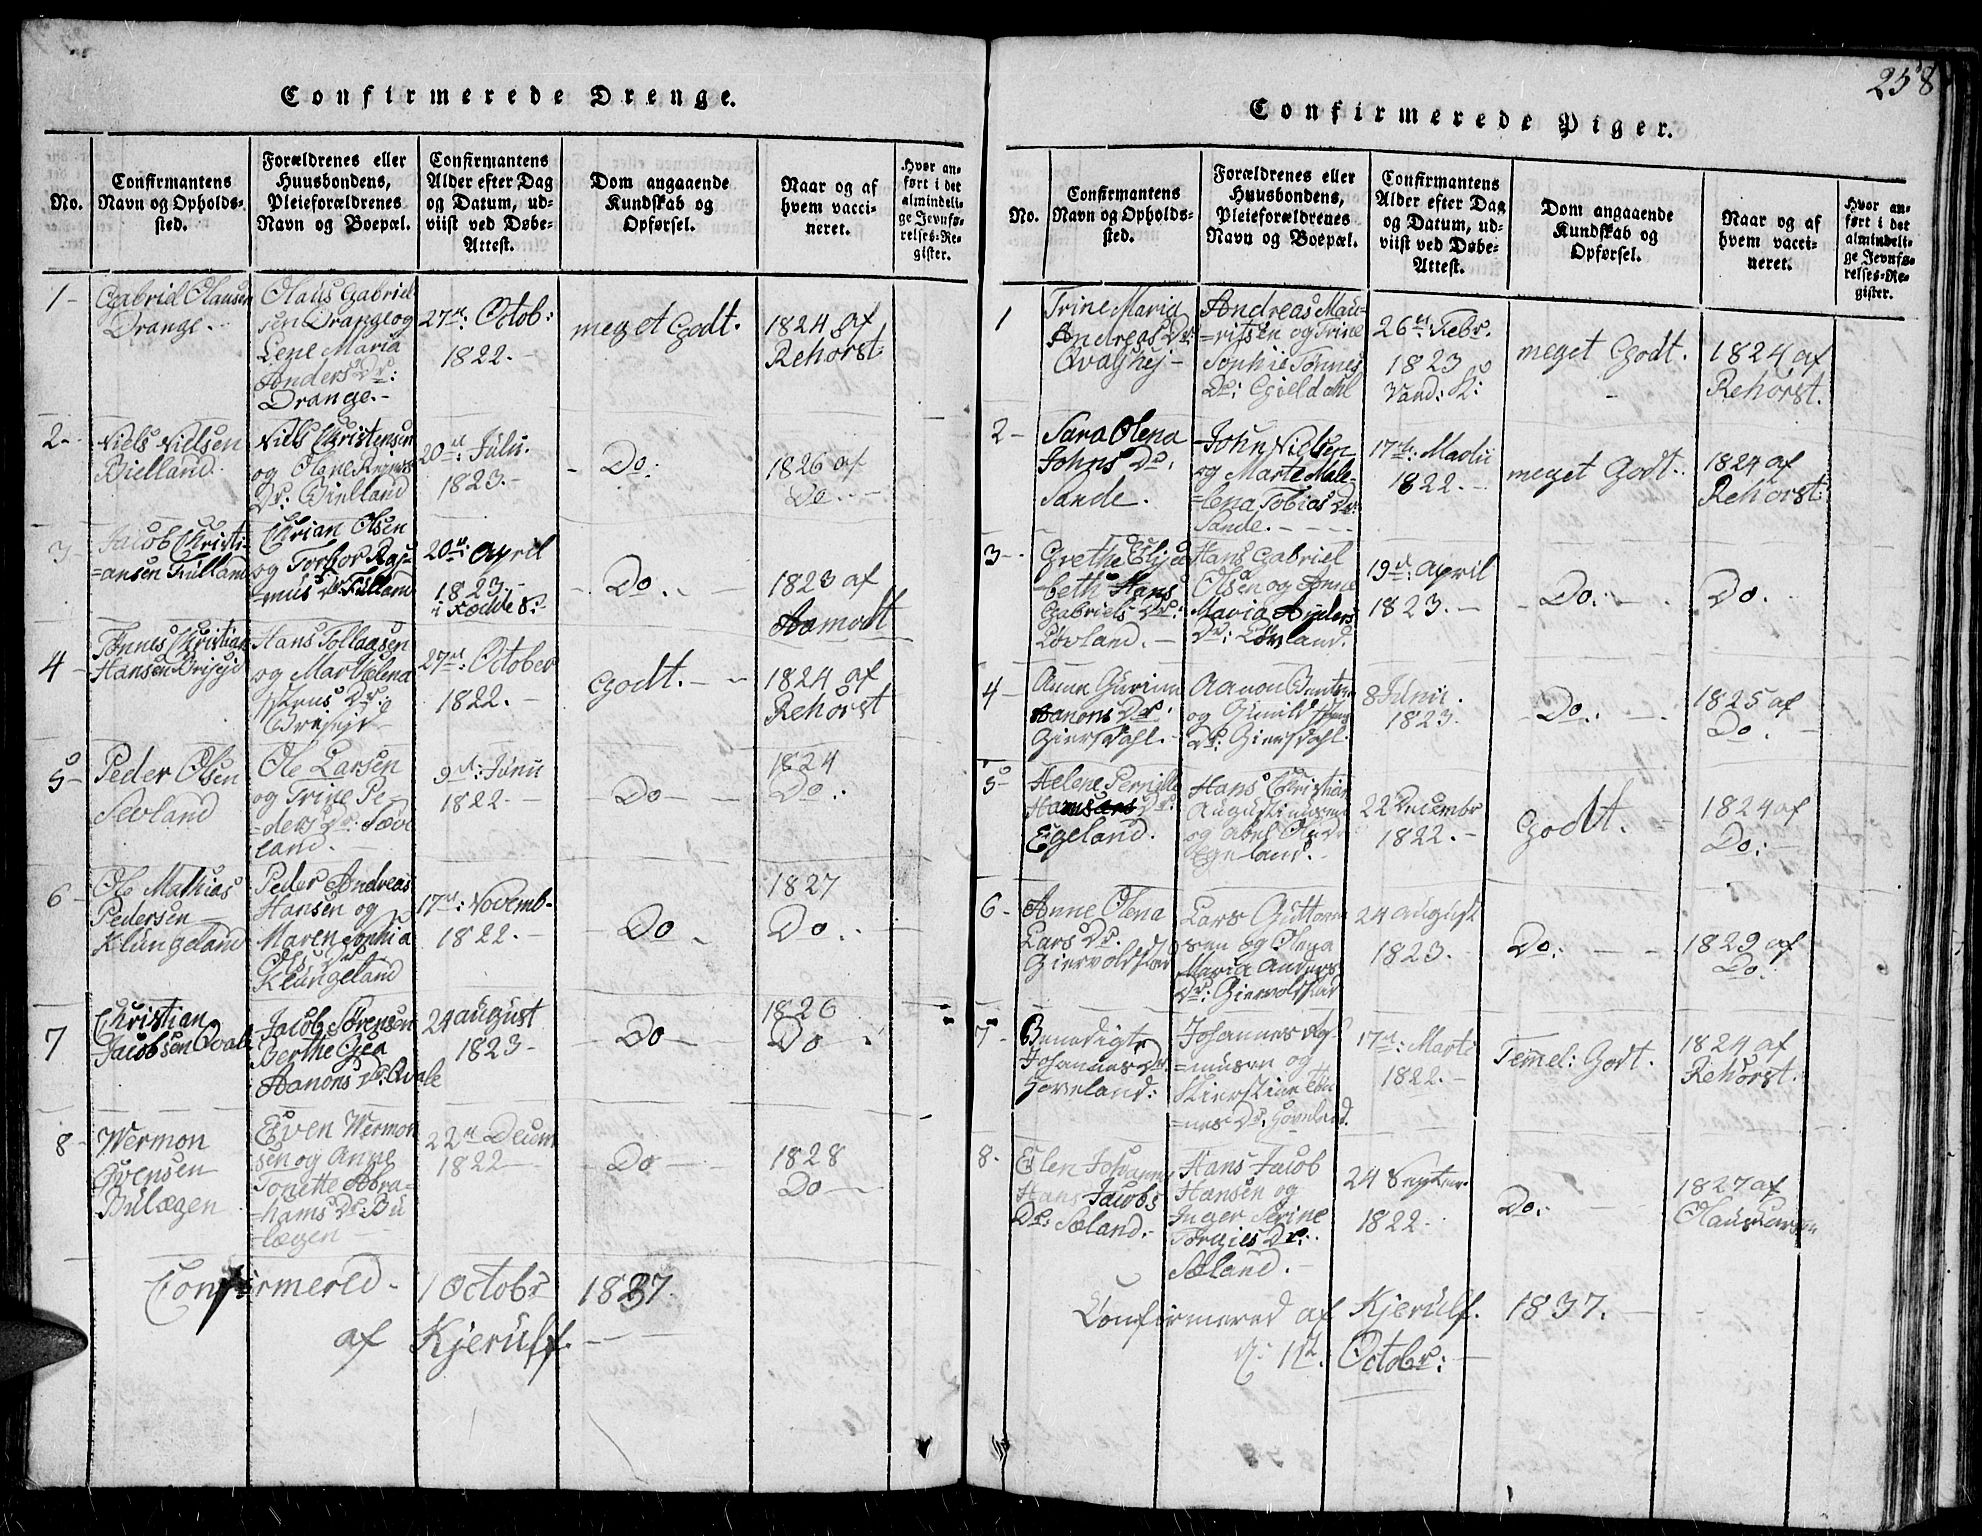 258
Confirmerede Drenge.
No.
Confirmantens
Navn og Opholds-
sted.
Forældrenes eller
Huusbondens,
Pleieforældrenes
Navn og Boepæl.
Confirmantens
Alder efter Dag
og Datum, ud-
viist ved Døbe-
Attest.
Dom angaaende
Kundskab og
Opførsel.
Naar og af
hvem vacci-
neret.
Hvor an-
ført i det
almindeli-
ge Jevnfø-
relses-Re-
gister.
1-
Gabriel Olausen
Drange.-
Olaus Gabriel
sen Drange og
Lene Maria
Anders Dr:
Drange.-
27de: Octob:
1822.-
meget Godt.
1824 af
Rehorst:
2-
Niels Nielsen
Bielland.
Niels Christensen
og Olene
Dr. Bielland
20de: Juli
1823.-
Do:
1826 af
Do.-
3-
Jacob Christi-
=ansen Fulland
Chrian Olsen
og Torbor Ras-
mus Dr. Fulland
20de: April
1823.-
Do.
1823 af
Aamodt
4-
Tønnes Christian
Hansen
Hans Tollagsen
og Marthelena
Dr.
27de: October
1822.-
Godt.-
1824 af
Rehorst
5-
Peder Olsen
Sevland
Ole Larsen
og Trine Pe-
ders Dr: Sæv
land.
9de: Junii
1822.-
Do-
1824
Do.
6-
Ole Mathias
Pedersen
Klungeland
Peder Andreas
Hansen og
Maren Sophia
Dr
Klungeland
17de: Novemb-
1822.-
Do-
1827
Do.
7
Christian
Jacobsen Qvale
Jacob Sørensen
Berthe Gea
Aanons Dr: Qvale
24 August
1823-
Do-
1826
Do
8-
Wermon
Evensen
Bulægen
Even Wermon
sen og Anne
Tonette Abra-
hams Dr Bu
lægen-
22de Decem
1822-
Do-
1828
Do-
Confirmered- 1 Octobr 1837.
af Kjerulf.-
Confirmerede Piger.
No.
Confirmantens
Navn og Opholds-
sted.
Forældrenes eller
Huusbondens,
Pleieforældrenes
Navn og Boepæl.
Confirmantens
Alder efter Dag
og Datum, ud-
viist ved Døbe-
Attest.
Dom angaaende
Kundskab og
Opførsel.
Naar og af
hvem vacci-
neret.
Hvor an-
ført i det
almindeli-
ge Jevnfø-
relses-Re-
gister.
1
Trine Maria
Andreas Dr:
Andreas Mau-
=ritsen og Trine
Sophie Tønnes
Dr: Gjeldahl
26de: Febr.
1823
Vand: K:
meget Godt.
1824 af
Rehorst.
2-
Sara Olena
Johns Dr.
Sande.
John Nielsen
og Marte Male-
=lena Tobias Dr:
Sande.-
17de: Martii
1822.-
meget Godt.
1824 af
Rehorst:
3-
Grethe Elisa
beth Hans
Gabriels Dr:
Lövland.-
Hans Gabriel
Olsen og Anne
Maria Anders
Dr: Lövland.
19de: April
1823.-
Do.-
Do.
4-
Anne Gurine
Aanons Dr:
Giersdahl.-
Aanon Bentsen
og Gunild
Dr: Giersdahl.
8 Junii.
1823.
Do.-
1825 af
Do.
5-
Helene Pernille
Dr.
Egeland.
Hans Christian
Augustinusen
og Abel
Egeland.-
22 Decembr
1822.-
Godt.-
1824 af
Do:-
6-
Anne Olena
Lars Dr.
Giervoldstad
Lars Guttorm
sen og Olena
Maria Anders
Dr: Giervoldstad
24 August
1823.
Do:-
1829 af
Do.
7-
Benedigte
Johannes Dr.
Hoveland:
Johannes
=musen og
=nes Dr. Hoveland.
17de: Marti
1822.-
Temmel: Godt.
1824 af
Rehorst.
8-
Elen Johanne
Hans Jacobs
Dr: Sæland.-
Hans Jacob
Hansen og
Inger Serine
Torgies Dr.
Sæland.-
24 Septer
1822.-
Do:
1827 af
Olaus Larsen
Confirmered af Kjerulf. 1837.-
1st. Octobr:-